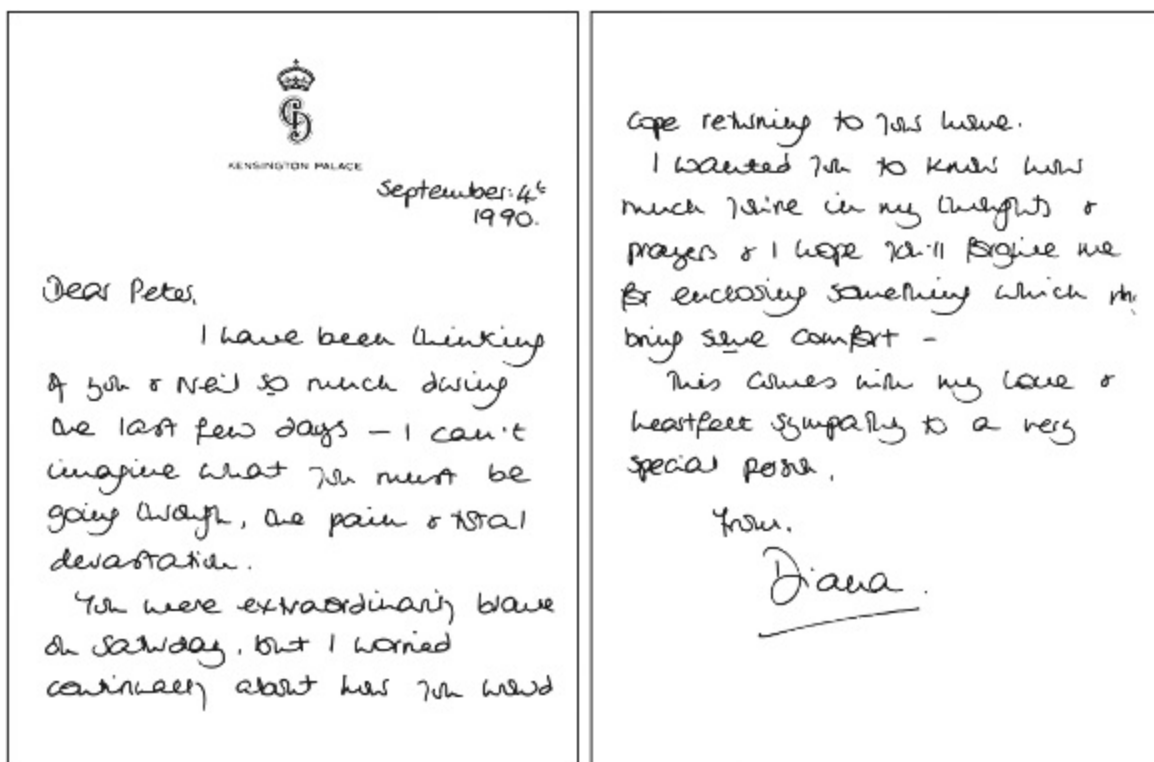 KENSINGTON PALACE
September: 4th
1990.
Dear Peter,
I have been thinking
of you & Neil so much during
the last few days — I can't
imagine what you must be
going through, the pain & total
devastation.
You were extraordinarily brave
on Saturday, but I worried
continually about how you would
cope returning to your home.
I wanted you to know how
much you're in my thoughts &
prayers & I hope you'll forgive me
for enclosing something which
bring some comfort -
This comes with my love &
heartfelt sympathy to a very
special person,
from.
Diana.